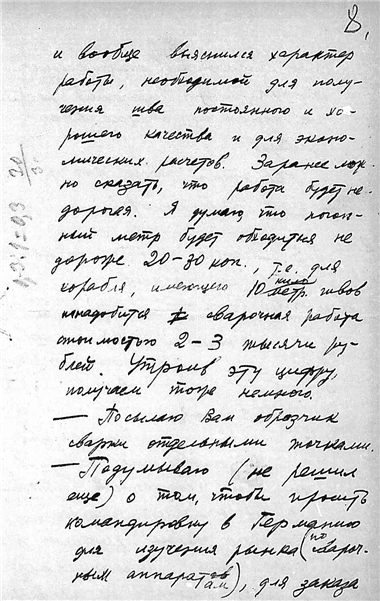 8.
и вообще выяснился характер
работы, необходимой для полу-
чения шва постоянного и хо-
рошего качества и для эконо-
мических расчетов. Заранее мож-
но сказать, что работа будет не-
дорогая. Я думаю, что погон-
ный метр будет обходиться не
дороже 20-30 коп., т.е. для
корабля, имеющего 10 кило
метр. швов
понадобится сварочная работа
стоимостью 2-3 тысячи ру-
блей. Утроив эту цифру,
получаем тоже немного.
— Посылаю Вам образчик
сварки отдельными точками.
— Подумываю (не решил
еще) о том, чтобы просить
командировку в Германию
для изучения рынка (по свароч-
ным аппаратам), для заказа